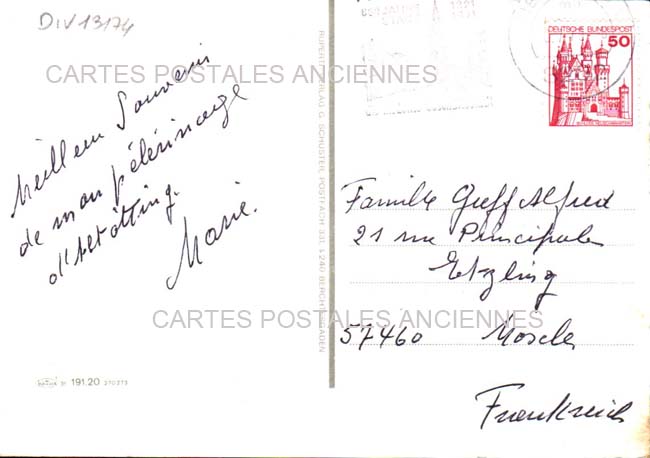 DIV13174
CARTES POSTALES ANCIENNES
Meilleur Souvenir
de mon pélérinage
d'Altötting.
Marie.
191.20
RUPERTI-VERLAG G. SCHUSTER, POSTFACH 331, 8240 BERCHTESGADEN
DEUTSCHE BUNDESPOST
50
Famille Greff Alfred
21 rue Principale
Etzling
57460 Moselle
Frankreich
CARTES POSTALES ANCIENNES